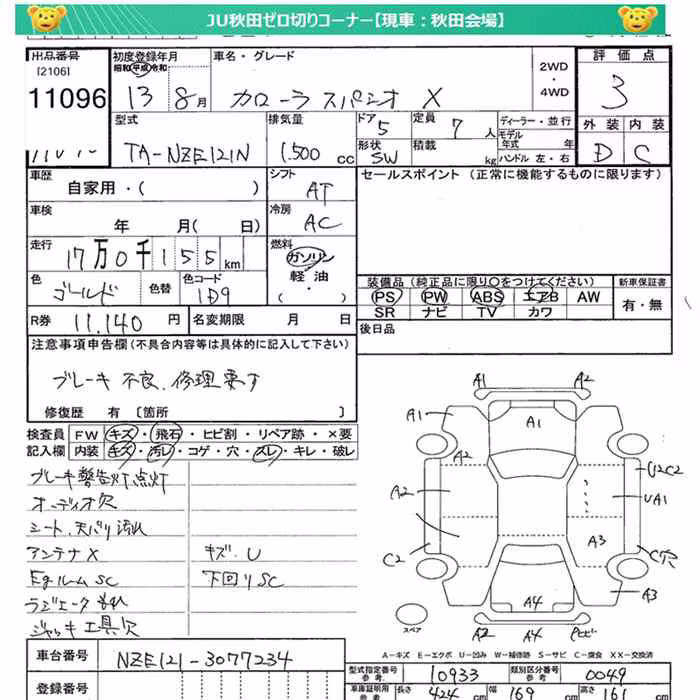 JU秋田ゼロ切りコーナー【現車：秋田会場】
出品番号 [2106] 11096
初度登録年月 昭和 平成 令和 13 8月
車名・グレード カローラ スパシオ X
2WD ・ 4WD
評価点 3
外装 D 内装 C
型式 TA-NZE121N
排気量 1,500 cc
ドア 5 形状 SW
定員 7 人 積載 kg
ディーラー・並行
モデル年式 年
ハンドル 左・右
車歴 自家用・( )
シフト AT
セールスポイント (正常に機能するものに限ります)
車検 年 月( 日)
冷房 AC
走行 17万0千155 km
燃料 ガソリン 軽油 ( ・ )
色 ゴールド 色替 色コード 1D9
装備品 (純正品に限り○をつけてください) 新車保証書
PS PW ABS エアB AW 有・無
SR ナビ TV カワ
R券 11,140 円 名変期限 月 日
後日品
注意事項申告欄 (不具合内容等は具体的に記入して下さい)
ブレーキ不良.修理要す
修復歴 有 [箇所 ]
検査員 FW キズ・飛石・ヒビ割・リペア跡・×要
記入欄 内装 キズ・汚レ・コゲ・穴・スレ・キレ・破レ
ブレーキ警告灯点灯
オーディオ欠
シート.天バリ汚れ
アンテナX キズ.U
Egルームsc 下回りsc
ジャッキ工具欠
A1 A2
A1 A1 A1
A2 U2C2
A2 UA1
A3
C2 C穴
A4 A3
スペア A2 A4
A-キズ E-エクボ U-凹み W-補修跡 S-サビ C-腐食 XX-交換済
車台番号 NZE121-3077234
型式指定番号 参考. 10933 類別区分番号 参考. 0049
登録番号
車庫証明用 参考. 長さ 424 cm 幅 169 cm 高さ 161 cm